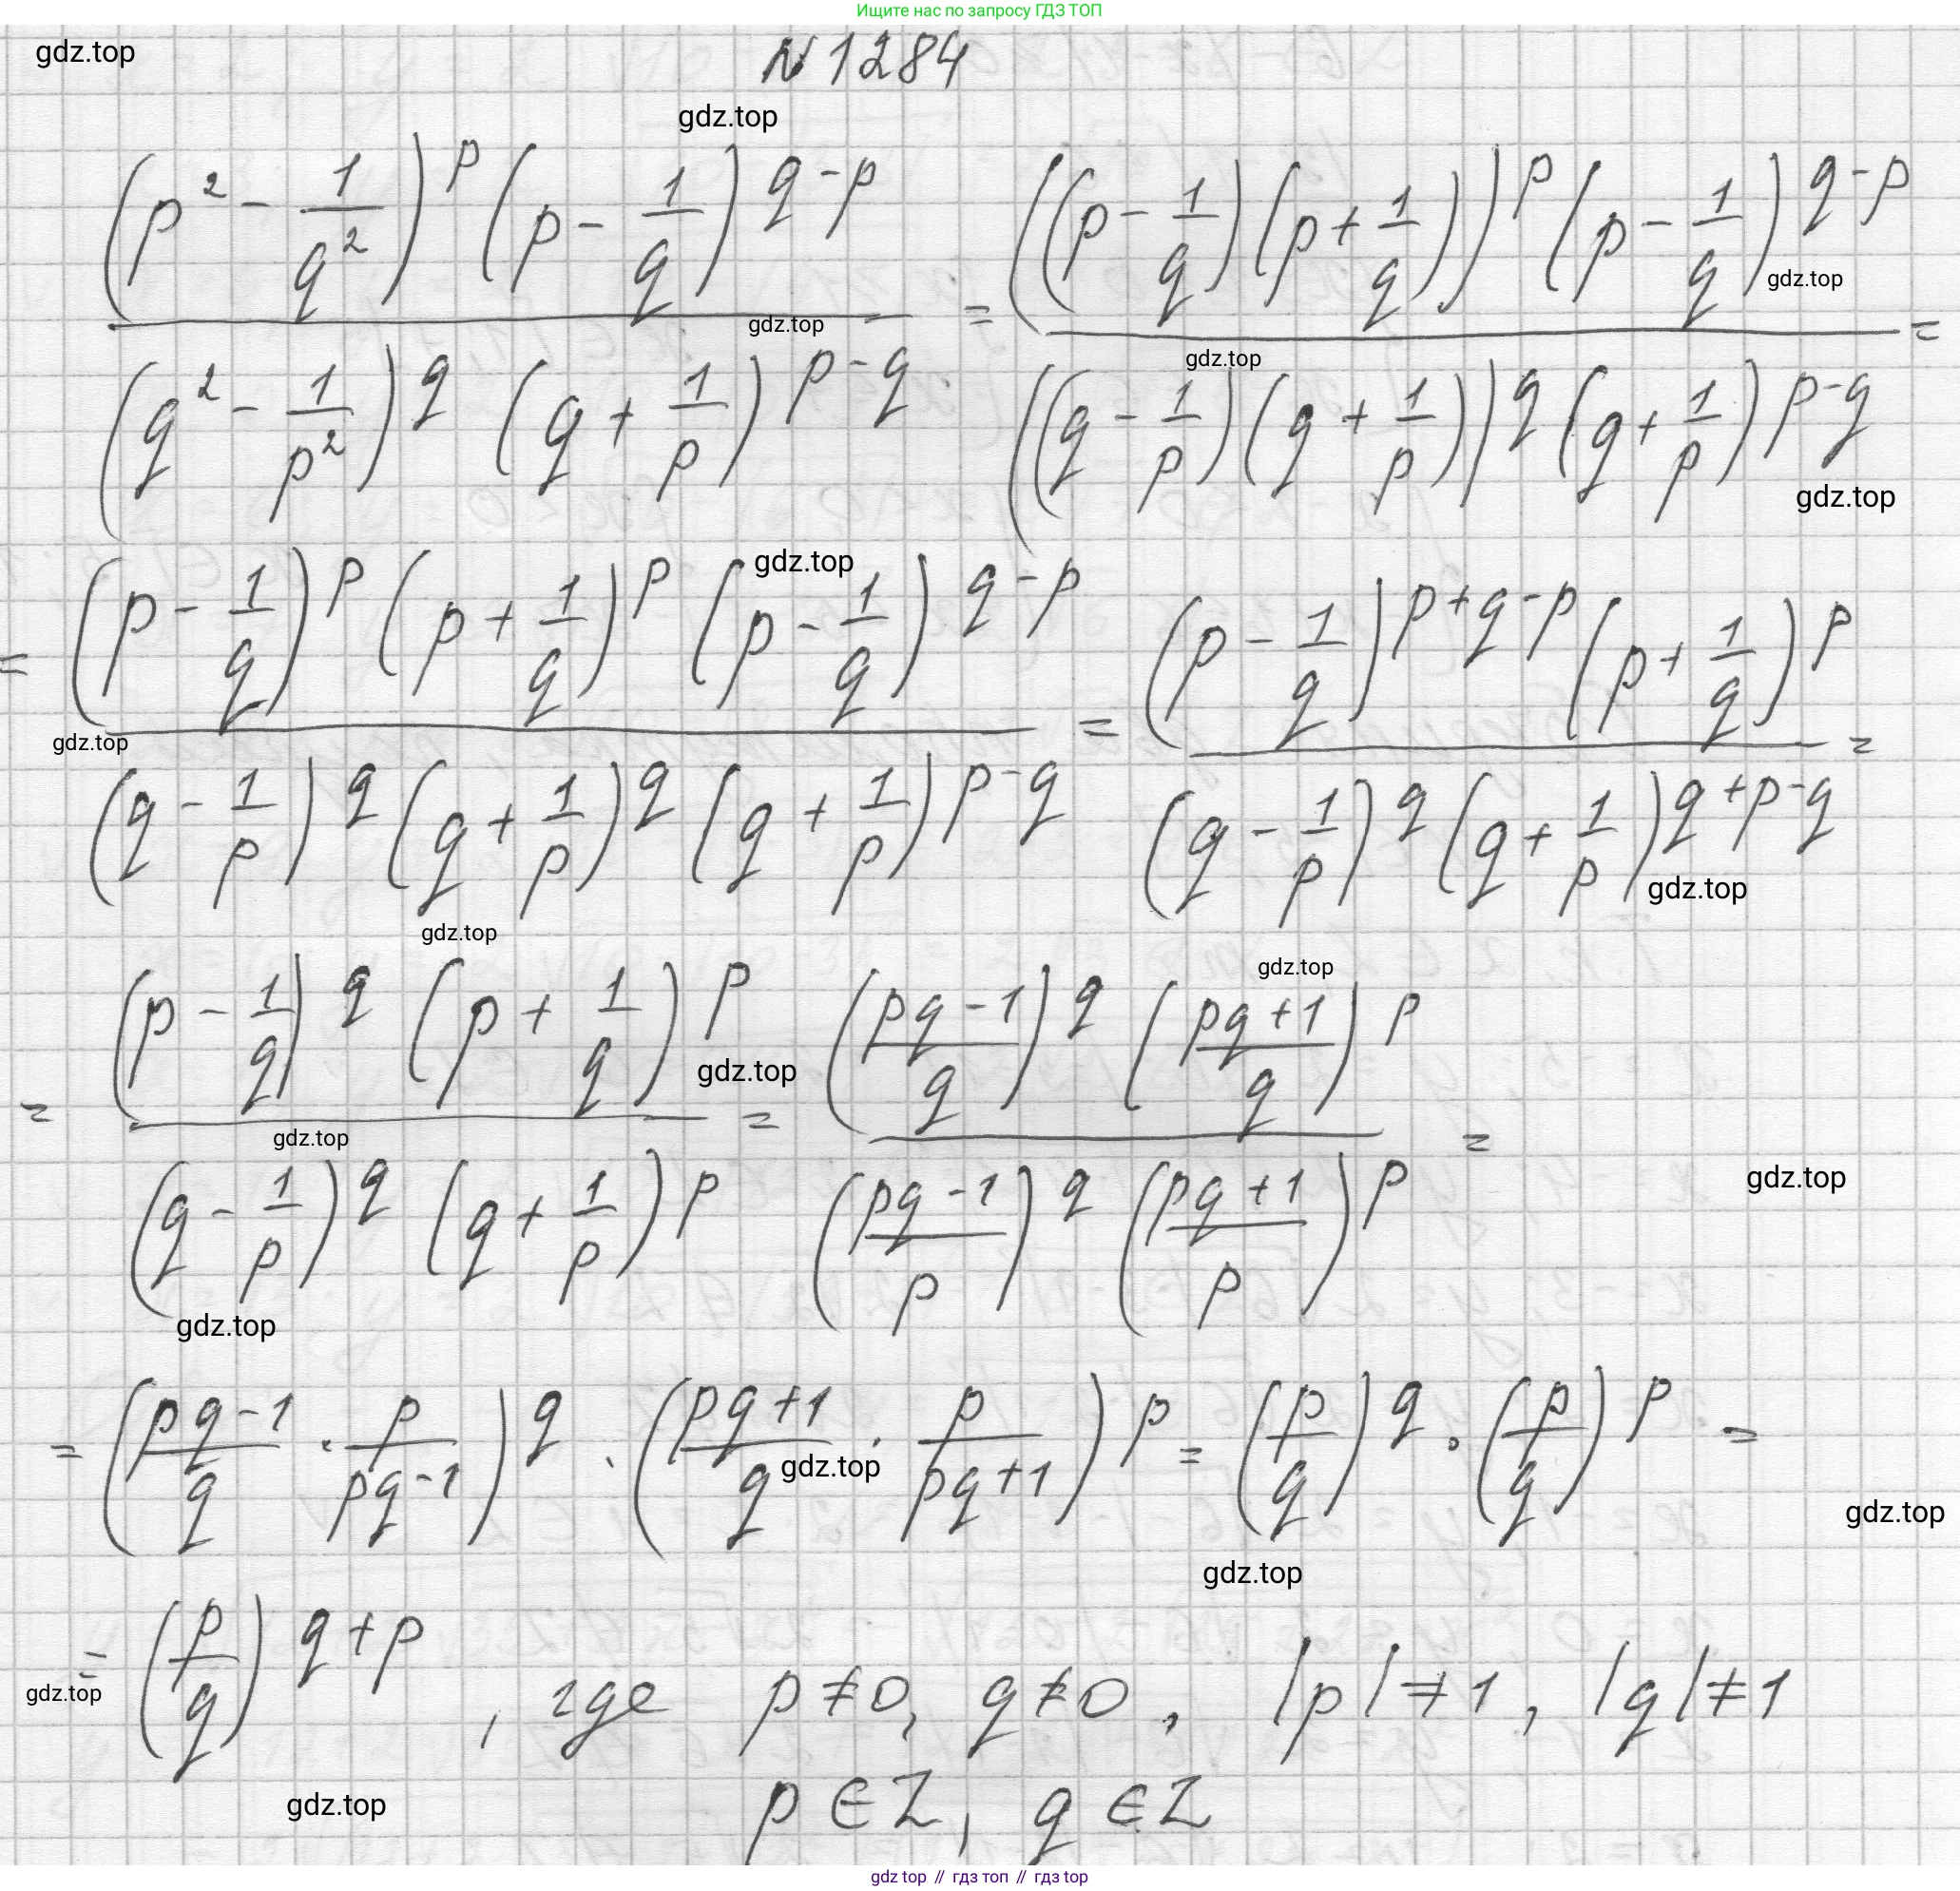 Ищите нас по запросу ГДЗ ТОП
gdz.top
№1284
gdz.top
(p² - 1/q²)^p (p - 1/q)^(q-p) / (q² - 1/p²)^q (q + 1/p)^(p-q) = ((p - 1/q)(p + 1/q))^p (p - 1/q)^(q-p) / ((q - 1/p)(q + 1/p))^q (q + 1/p)^(p-q) =
gdz.top
gdz.top
gdz.top
gdz.top
= (p - 1/q)^p (p + 1/q)^p (p - 1/q)^(q-p) / (q - 1/p)^q (q + 1/p)^q (q + 1/p)^(p-q) = (p - 1/q)^(p+q-p) (p + 1/q)^p / (q - 1/p)^q (q + 1/p)^(q+p-q) =
gdz.top
gdz.top
gdz.top
gdz.top
gdz.top
= (p - 1/q)^q (p + 1/q)^p / (q - 1/p)^q (q + 1/p)^p = ((pq-1)/q)^q ((pq+1)/q)^p / ((pq-1)/p)^q ((pq+1)/p)^p =
gdz.top
gdz.top
gdz.top
gdz.top
= ((pq-1)/q · p/(pq-1))^q · ((pq+1)/q · p/(pq+1))^p = (p/q)^q · (p/q)^p =
gdz.top
gdz.top
gdz.top
= (p/q)^(q+p), где p≠0, q≠0, |p|≠1, |q|≠1
gdz.top
gdz.top
p∈Z, q∈Z
gdz top // гдз топ // гдз top